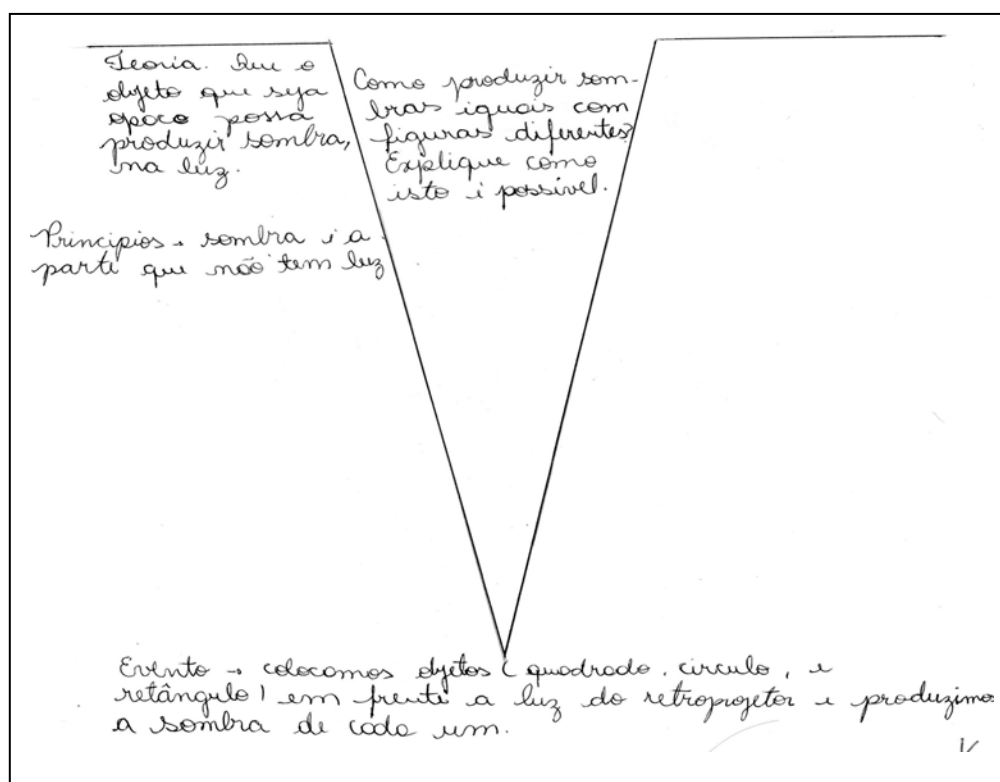 Teoria. Que o
objeto que seja
opaco possa
produzir sombra,
na luz.
Princípios → sombra é a
parte que não tem luz
Como produzir som-
bras iguais com
figuras diferentes?
Explique como
isto é possível.
Evento → colocamos objetos (quadrado, círculo, e
retângulo) em frente a luz do retroprojetor e produzimos
a sombra de cada um.